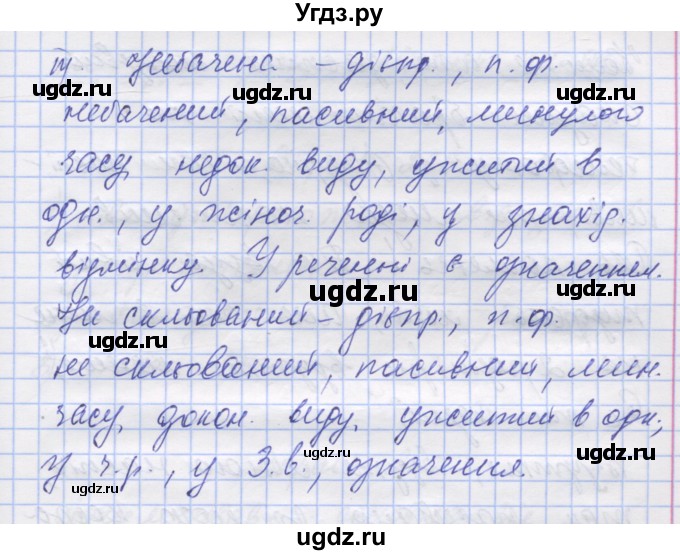 Угдз.ру
ІІІ Небачена – дієпр., п.ф.
небачений, пасивний, минулого
часу, недок. виду, ужитий в
одн., у жіноч. роді, у знахід.
відмінку. У реченні є означенням.
Не скльований – дієпр., п.ф.
не скльований, пасивний, мин.
часу, докон. виду, ужитий в одн.,
у ч.р., у З.в., означення.
ugdz.ru
ugdz.ru
ugdz.ru
ugdz.ru
ugdz.ru
ugdz.ru
ugdz.ru
ugdz.ru
ugdz.ru
ugdz.ru
ugdz.ru
ugdz.ru
ugdz.ru
ugdz.ru